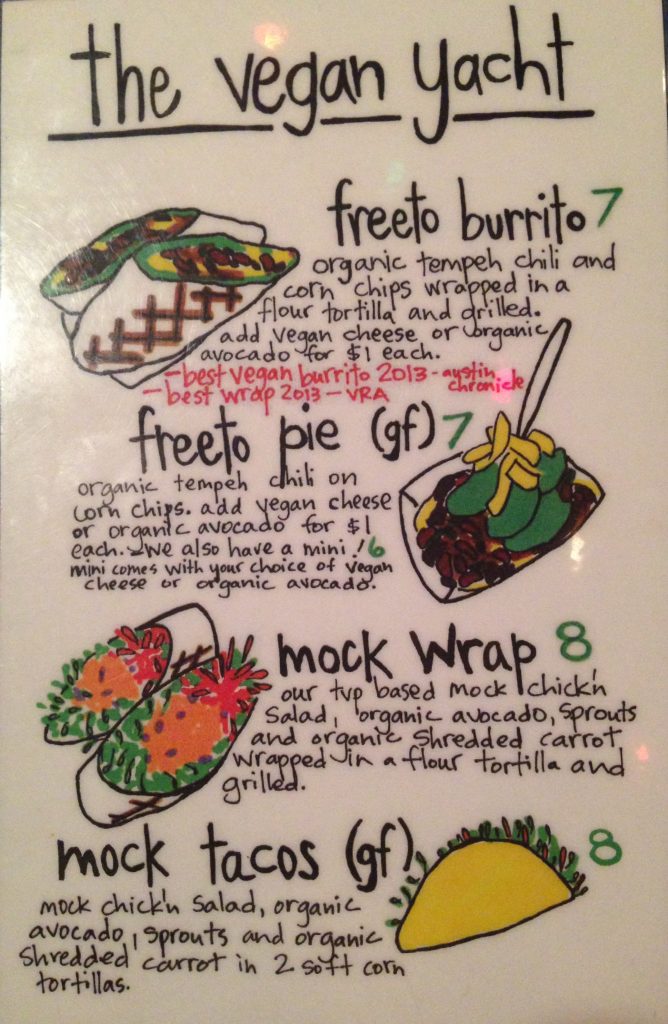 the vegan yacht
freeto burrito 7
organic tempeh chili and
corn chips wrapped in a
flour tortilla and grilled.
add vegan cheese or organic
avocado for $1 each.
-best vegan burrito 2013 - austin
chronicle
-best wrap 2013 - VRA
freeto pie (gf) 7
organic tempeh chili on
corn chips. add vegan cheese
or organic avocado for $1
each. we also have a mini! 6
mini comes with your choice of vegan
cheese or organic avocado.
mock wrap 8
our tvp based mock chick'n
salad, organic avocado, sprouts
and organic shredded carrot
wrapped in a flour tortilla and
grilled.
mock tacos (gf) 8
mock chick'n salad, organic
avocado, sprouts and organic
shredded carrot in 2 soft corn
tortillas.